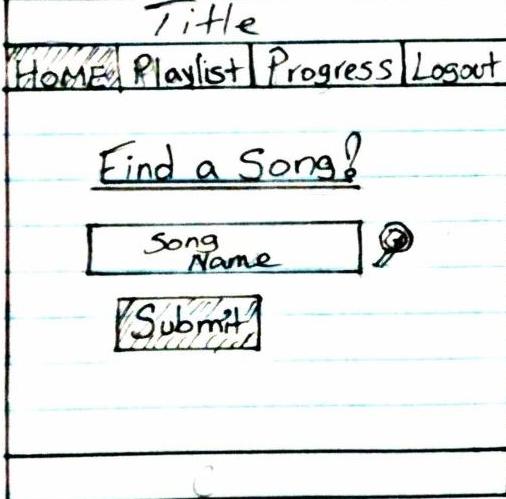 Title
HOME Playlist Progress Logout
Find a Song!
Song
Name
Submit